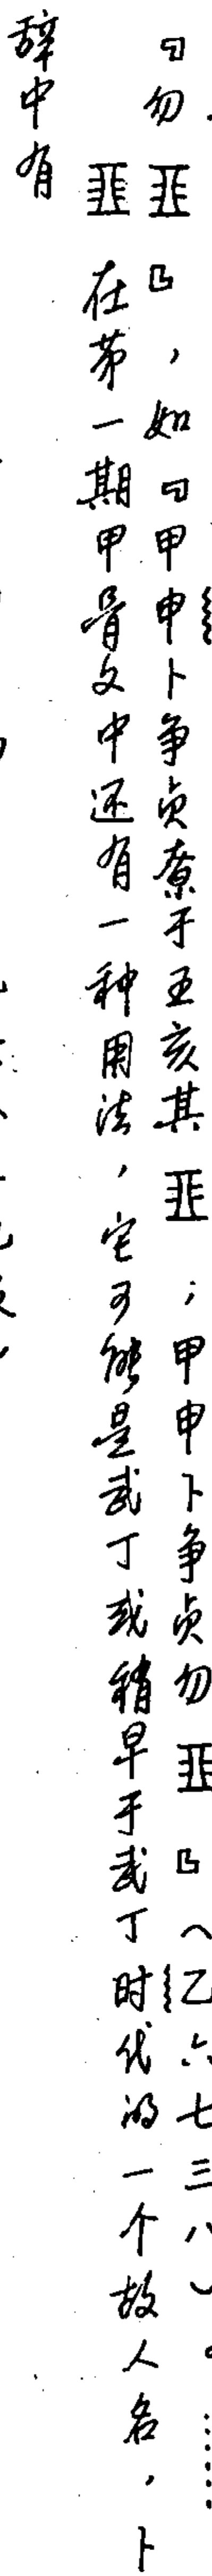 「勿𨐨」,如「甲申卜争贞尞于王亥其𨐨;甲申卜争贞勿𨐨」(乙六七三八)。……
𨐨在第一期甲骨文中还有一种用法,它可能是武丁或稍早于武丁时代的一个故人名,卜
辞中有